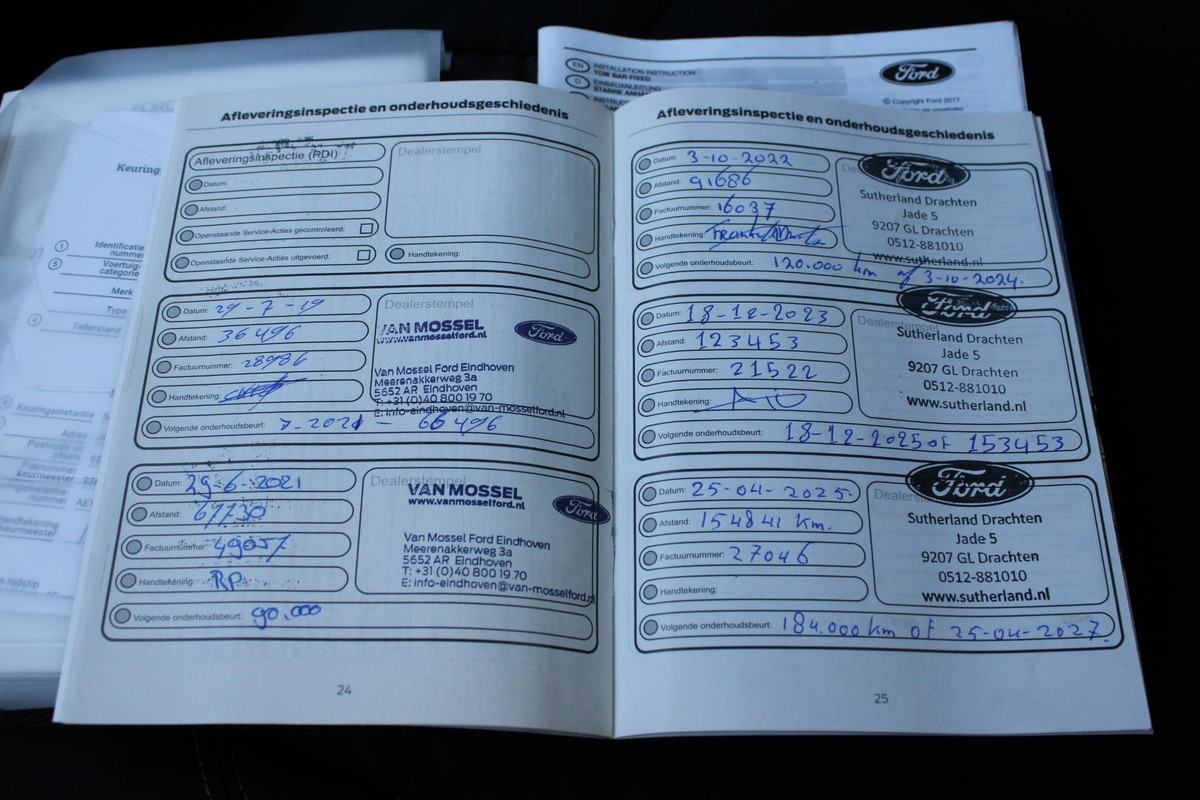 Keuring
1 Identificatie
nummer
5 Voertuig-
categorie
Merk
Type
4 Tellerstand
Keuringsinstantie
Adres
EN INSTALLATION INSTRUCTION
TOW BAR FIXED
D EINBAUANLEITUNG
Ford
© Copyright Ford 2017
Afleveringsinspectie en onderhoudsgeschiedenis
Afleveringsinspectie (PDI)
Datum:
Afstand:
Openstaande Service-Acties gecontroleerd:
Openstaande Service-Acties uitgevoerd:
Dealerstempel
Handtekening:
Datum: 29-7-19
Afstand: 36496
Factuurnummer: 28986
Handtekening:
Volgende onderhoudsbeurt: 7-2021 - 66496
Dealerstempel
VAN MOSSEL
www.vanmosselford.nl
Ford
Van Mossel Ford Eindhoven
Meerenakkerweg 3a
5652 AR Eindhoven
T: +31 (0)40 800 19 70
E: info-eindhoven@van-mosselford.nl
Datum: 29-6-2021
Afstand: 67730
Factuurnummer: 49057
Handtekening: RP
Volgende onderhoudsbeurt: 90.000
Dealerstempel
VAN MOSSEL
www.vanmosselford.nl
Ford
Van Mossel Ford Eindhoven
Meerenakkerweg 3a
5652 AR Eindhoven
T: +31 (0)40 800 19 70
E: info-eindhoven@van-mosselford.nl
24
Afleveringsinspectie en onderhoudsgeschiedenis
Datum: 3-10-2022
Afstand: 91686
Factuurnummer: 16037
Handtekening:
Volgende onderhoudsbeurt: 120.000 km of 3-10-2024.
Ford
Sutherland Drachten
Jade 5
9207 GL Drachten
0512-881010
www.sutherland.nl
Datum: 18-12-2023
Afstand: 123453
Factuurnummer: 21522
Handtekening:
Volgende onderhoudsbeurt: 18-12-2025 of 153453
Ford
Sutherland Drachten
Jade 5
9207 GL Drachten
0512-881010
www.sutherland.nl
Datum: 25-04-2025.
Afstand: 154841 km.
Factuurnummer: 27046
Handtekening:
Volgende onderhoudsbeurt: 184.000 km of 25-04-2027.
Ford
Sutherland Drachten
Jade 5
9207 GL Drachten
0512-881010
www.sutherland.nl
25